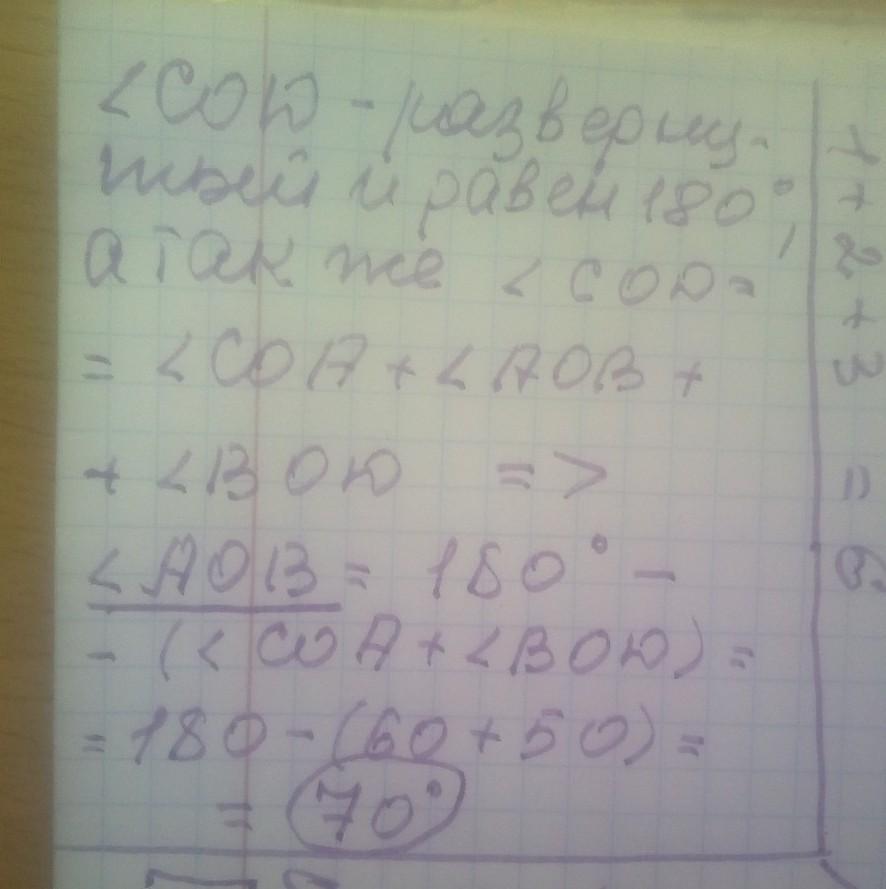 <COD - разверну-
тый и равен 180°,
а так же <COD =
= <COA + <AOB +
+ <BOD =>
<AOB = 180° -
- (<COA + <BOD) =
= 180 - (60 + 50) =
= 70°
1 + 2 + 3 = 6